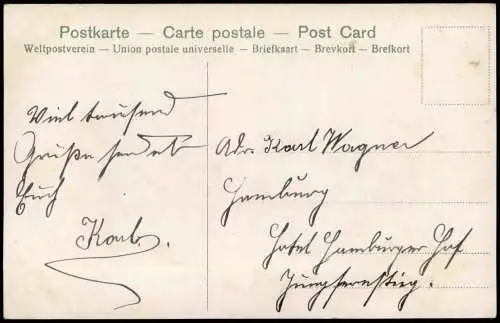 Postkarte — Carte postale — Post Card
Weltpostverein — Union postale universelle — Briefkaart — Brevkort — Brefkort
Viel tausend
Grüße sendet
Euch
Karl.
Adr. Karl Wagner
Hamburg
Hotel Hamburger Hof
Jungfernstieg.